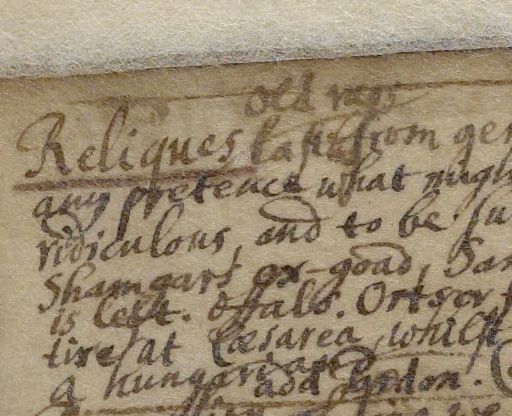 old rags
Reliques from gen
any pretence what migh
ridiculous, and to be su
Shamgars ox-goad, Sam
is left. offals. Orts or
tire at Cæsarea, whilst
a hungarian
add